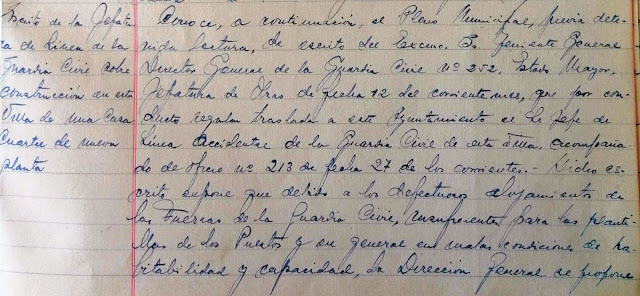 Escrito de la Jefatu-
ra de Línea de la
Guardia Civil sobre
construcción en esta
Villa de una Casa
Cuartel de nueva
planta
Conoce, a continuación, el Pleno Municipal, previa dete-
nida lectura, de escrito del Excmo. Sr. Teniente General
Director General de la Guardia Civil nº 252, Estado Mayor,
Jefatura de Obras de fecha 12 del corriente mes, que por con-
ducto regular traslada a este Ayuntamiento el Sr Jefe de
Línea Accidental de la Guardia Civil de esta Villa, acompaña-
do de oficio nº 213 de fecha 27 de los corrientes.- Dicho es-
crito expone que debido a los defectuosos alojamientos de
las Fuerzas de la Guardia Civil, insuficientes para las planti-
llas de los Puestos y en general en malas condiciones de ha-
bitabilidad y capacidad, la Dirección General se propone